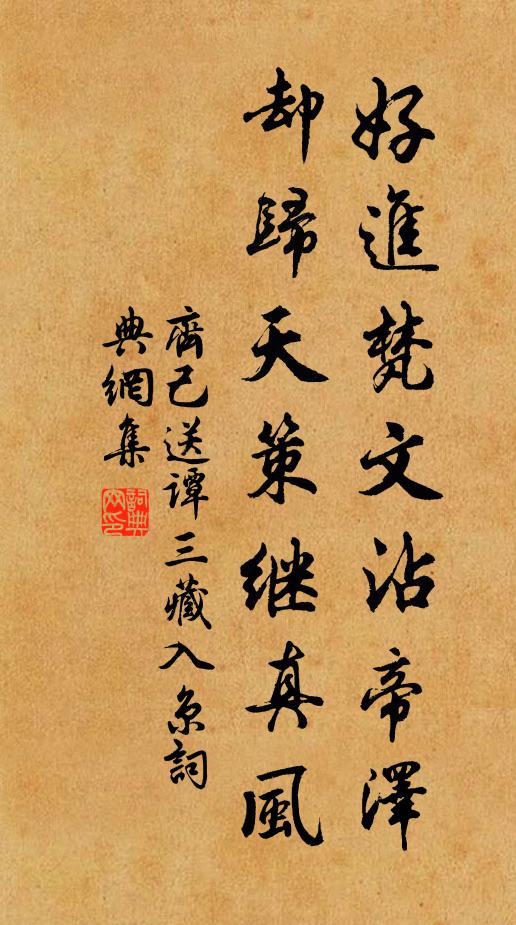 好進梵文沾帝澤
却歸天策继真風
齊己送谭三藏入京詞
典網集
詞典
网印